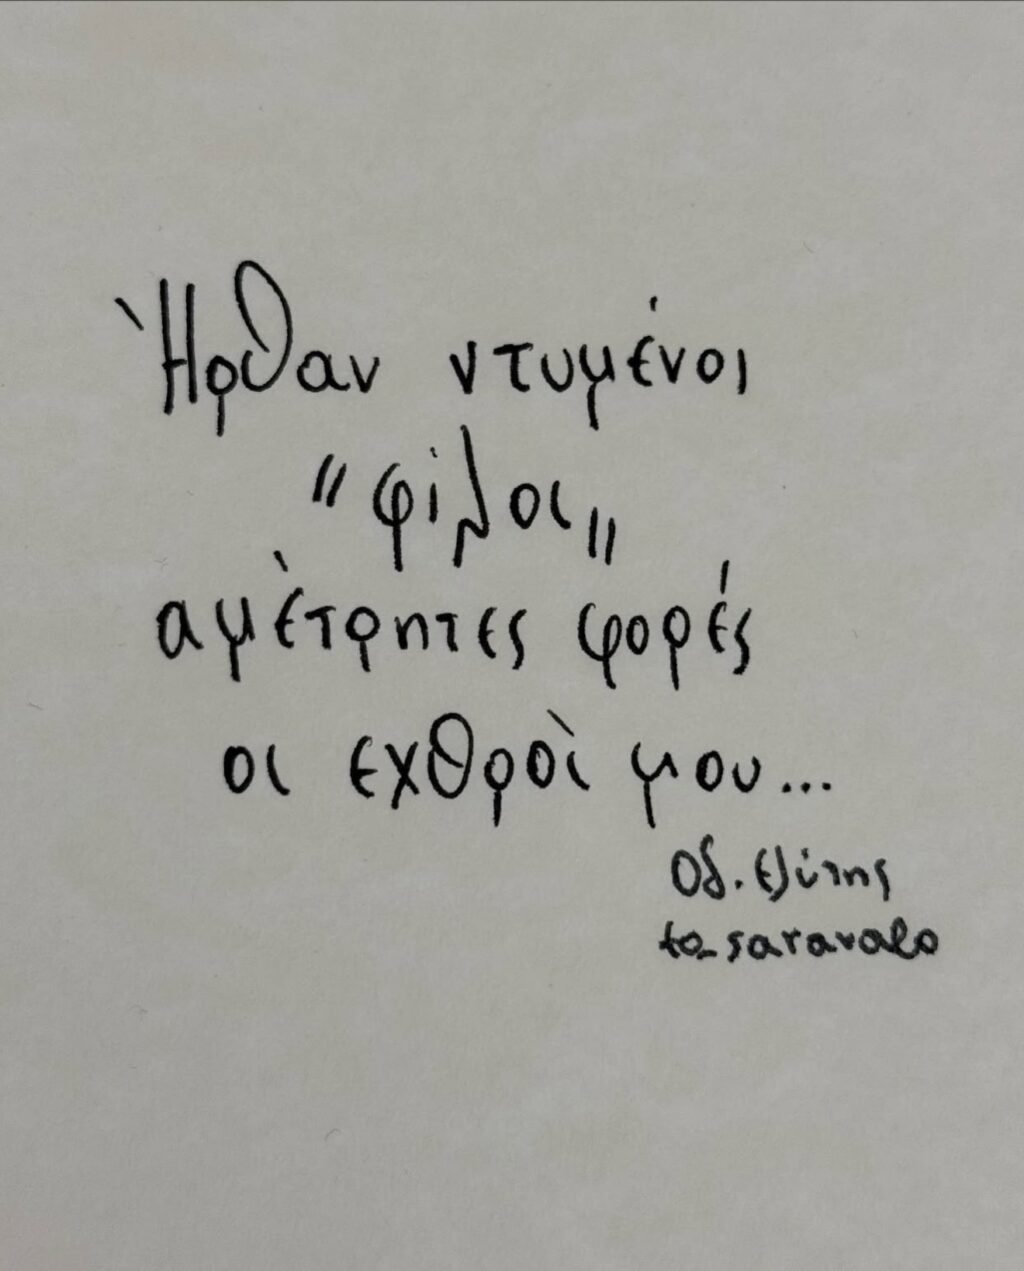 Ήρθαν ντυμένοι
"φίλοι"
αμέτρητες φορές
οι εχθροί μου...
Οδ. Ελύτης
to_saravalo